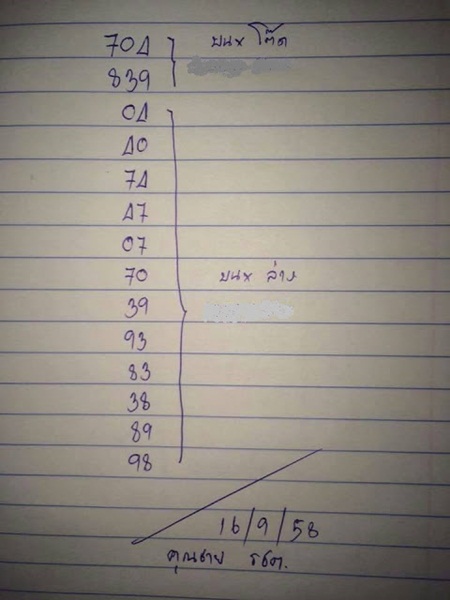 704 } บน x โต๊ด
839
04
40
74
47
07
70 } บน x ล่าง
39
93
83
38
89
98
16/9/58
คุณชาย รชต.